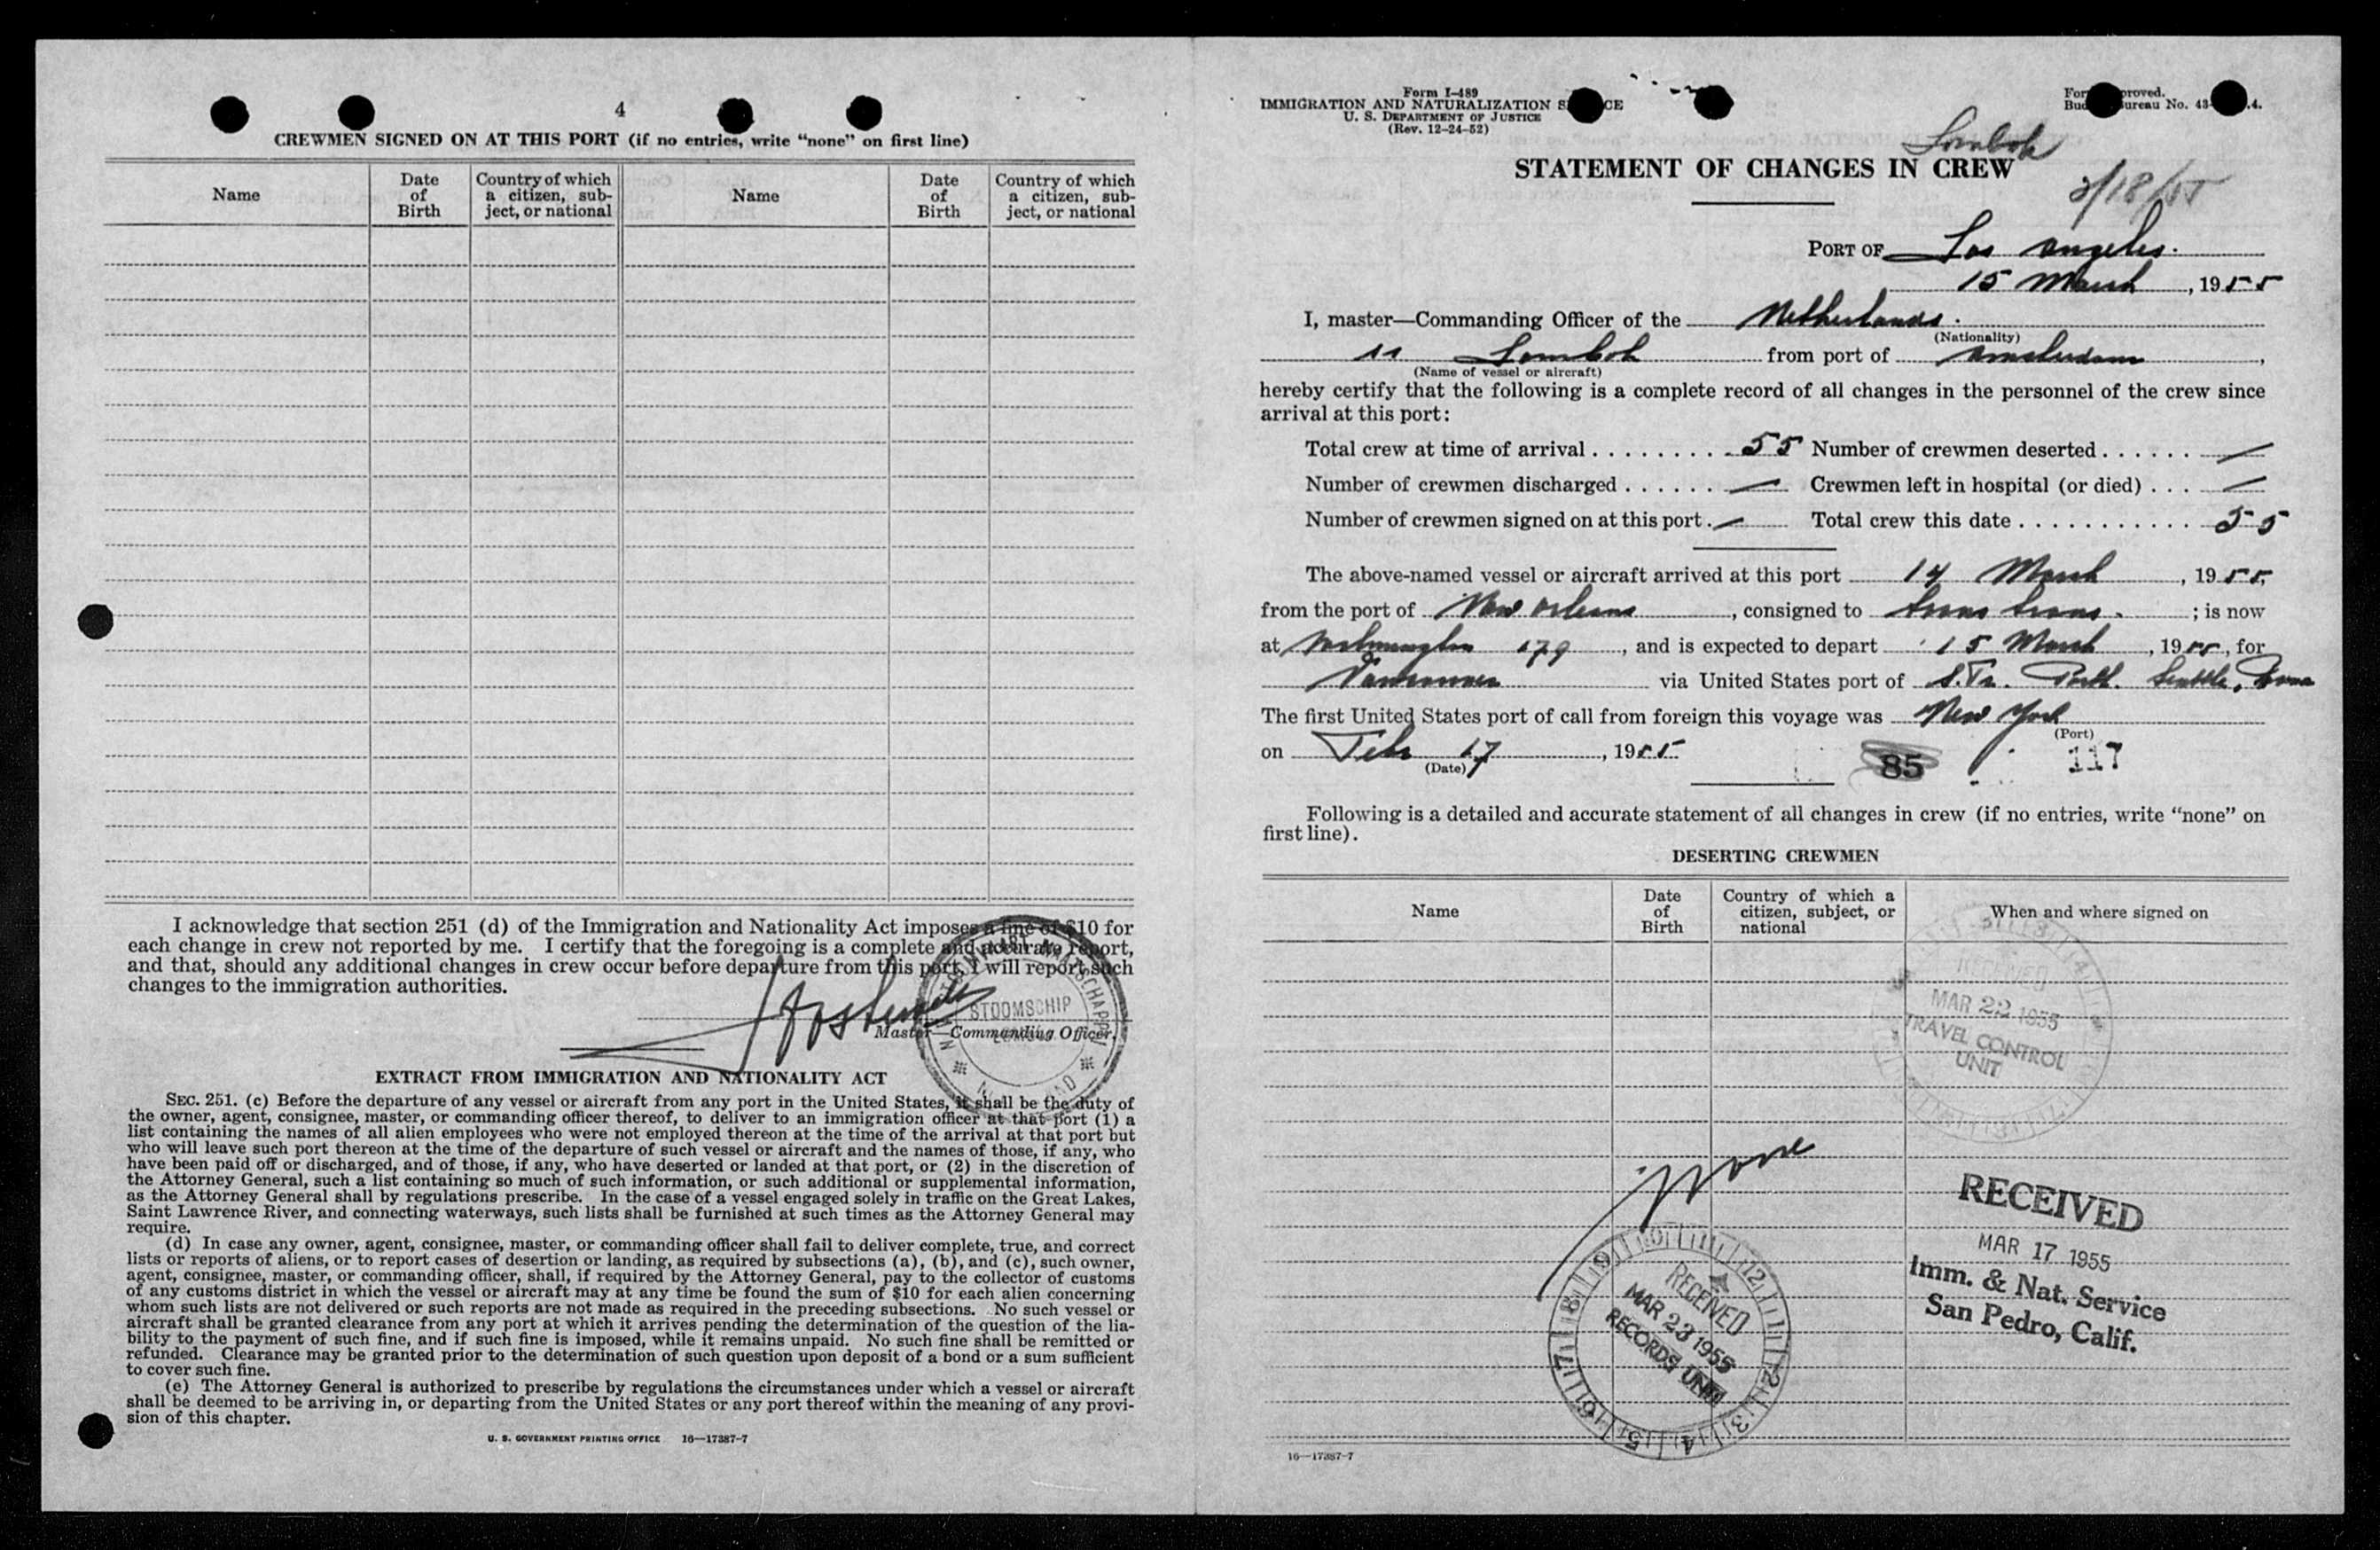 4
CREWMEN SIGNED ON AT THIS PORT (if no entries, write "none" on first line)
Name
Date of Birth
Country of which a citizen, subject, or national
Name
Date of Birth
Country of which a citizen, subject, or national
I acknowledge that section 251 (d) of the Immigration and Nationality Act imposes a fine of $10 for
each change in crew not reported by me. I certify that the foregoing is a complete and accurate report,
and that, should any additional changes in crew occur before departure from this port, I will report such
changes to the immigration authorities.
STOOMSCHIP
Master—Commanding Officer.
EXTRACT FROM IMMIGRATION AND NATIONALITY ACT
SEC. 251. (c) Before the departure of any vessel or aircraft from any port in the United States, it shall be the duty of
the owner, agent, consignee, master, or commanding officer thereof, to deliver to an immigration officer at that port (1) a
list containing the names of all alien employees who were not employed thereon at the time of the arrival at that port but
who will leave such port thereon at the time of the departure of such vessel or aircraft and the names of those, if any, who
have been paid off or discharged, and of those, if any, who have deserted or landed at that port, or (2) in the discretion of
the Attorney General, such a list containing so much of such information, or such additional or supplemental information,
as the Attorney General shall by regulations prescribe. In the case of a vessel engaged solely in traffic on the Great Lakes,
Saint Lawrence River, and connecting waterways, such lists shall be furnished at such times as the Attorney General may
require.
(d) In case any owner, agent, consignee, master, or commanding officer shall fail to deliver complete, true, and correct
lists or reports of aliens, or to report cases of desertion or landing, as required by subsections (a), (b), and (c), such owner,
agent, consignee, master, or commanding officer, shall, if required by the Attorney General, pay to the collector of customs
of any customs district in which the vessel or aircraft may at any time be found the sum of $10 for each alien concerning
whom such lists are not delivered or such reports are not made as required in the preceding subsections. No such vessel or
aircraft shall be granted clearance from any port at which it arrives pending the determination of the question of the lia-
bility to the payment of such fine, and if such fine is imposed, while it remains unpaid. No such fine shall be remitted or
refunded. Clearance may be granted prior to the determination of such question upon deposit of a bond or a sum sufficient
to cover such fine.
(e) The Attorney General is authorized to prescribe by regulations the circumstances under which a vessel or aircraft
shall be deemed to be arriving in, or departing from the United States or any port thereof within the meaning of any provi-
sion of this chapter.
U. S. GOVERNMENT PRINTING OFFICE 16—17387-7
Form I-489
IMMIGRATION AND NATURALIZATION S CE
U. S. DEPARTMENT OF JUSTICE
(Rev. 12-24-52)
For proved.
Bud ureau No. 43- .4.
Lombok
STATEMENT OF CHANGES IN CREW
3/18/55
PORT OF Los Angeles.
15 March, 1955
I, master—Commanding Officer of the Netherlands.
(Nationality)
Lombok from port of Amsterdam,
(Name of vessel or aircraft)
hereby certify that the following is a complete record of all changes in the personnel of the crew since
arrival at this port:
Total crew at time of arrival . . . . . . . . . 55 Number of crewmen deserted . . . . . . —
Number of crewmen discharged . . . . . . — Crewmen left in hospital (or died) . . . —
Number of crewmen signed on at this port . — Total crew this date . . . . . . . . . . . 55
The above-named vessel or aircraft arrived at this port 14 March, 1955,
from the port of New Orleans, consigned to Trans Trans. ; is now
at Wilmington 179, and is expected to depart 15 March, 1955, for
Vancouver via United States port of S. Fr. Portl. Seattle,
The first United States port of call from foreign this voyage was New York
(Port)
on Feb 17, 1955
(Date)
85
117
Following is a detailed and accurate statement of all changes in crew (if no entries, write "none" on
first line).
DESERTING CREWMEN
Name
Date of Birth
Country of which a citizen, subject, or national
When and where signed on
RECEIVED
MAR 22 1955
TRAVEL CONTROL
UNIT
none
RECEIVED
MAR 17 1955
Imm. & Nat. Service
San Pedro, Calif.
RECEIVED
MAR 23 1955
RECORDS UNIT
16—17387-7